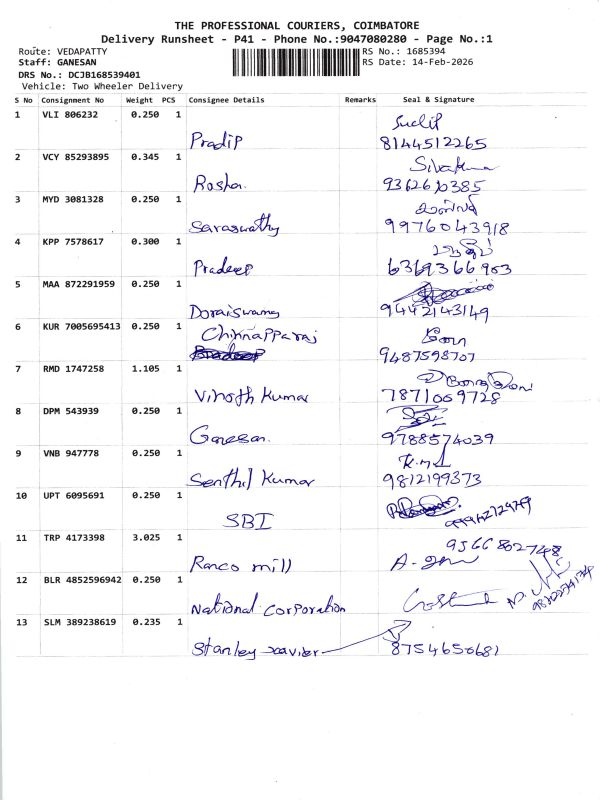 THE PROFESSIONAL COURIERS, COIMBATORE
Delivery Runsheet - P41 - Phone No.:9047080280 - Page No.:1
Route: VEDAPATTY RS No.: 1685394
Staff: GANESAN RS Date: 14-Feb-2026
DRS No.: DCJB168539401
Vehicle: Two Wheeler Delivery
S No Consignment No Weight PCS Consignee Details Remarks Seal & Signature
1 VLI 806232 0.250 1
Pradip 8144512265
2 VCY 85293895 0.345 1
Rosha
3 MYD 3081328 0.250 1
Saraswathy 9976043918
4 KPP 7578617 0.300 1
Pradeep 6369366903
5 MAA 872291959 0.250 1
Doraiswamy 9442143149
6 KUR 7005695413 0.250 1 Chinnapparaj
9487598707
7 RMD 1747258 1.105 1
Vinoth Kumar 7871009728
8 DPM 543939 0.250 1
Ganesan 9788574039
9 VNB 947778 0.250 1
Senthil Kumar 9812199373
10 UPT 6095691 0.250 1
SBI
11 TRP 4173398 3.025 1 9566802748
Ranco mill
12 BLR 4852596942 0.250 1
National Corporation
13 SLM 389238619 0.235 1
Stanley xavier 8754656681